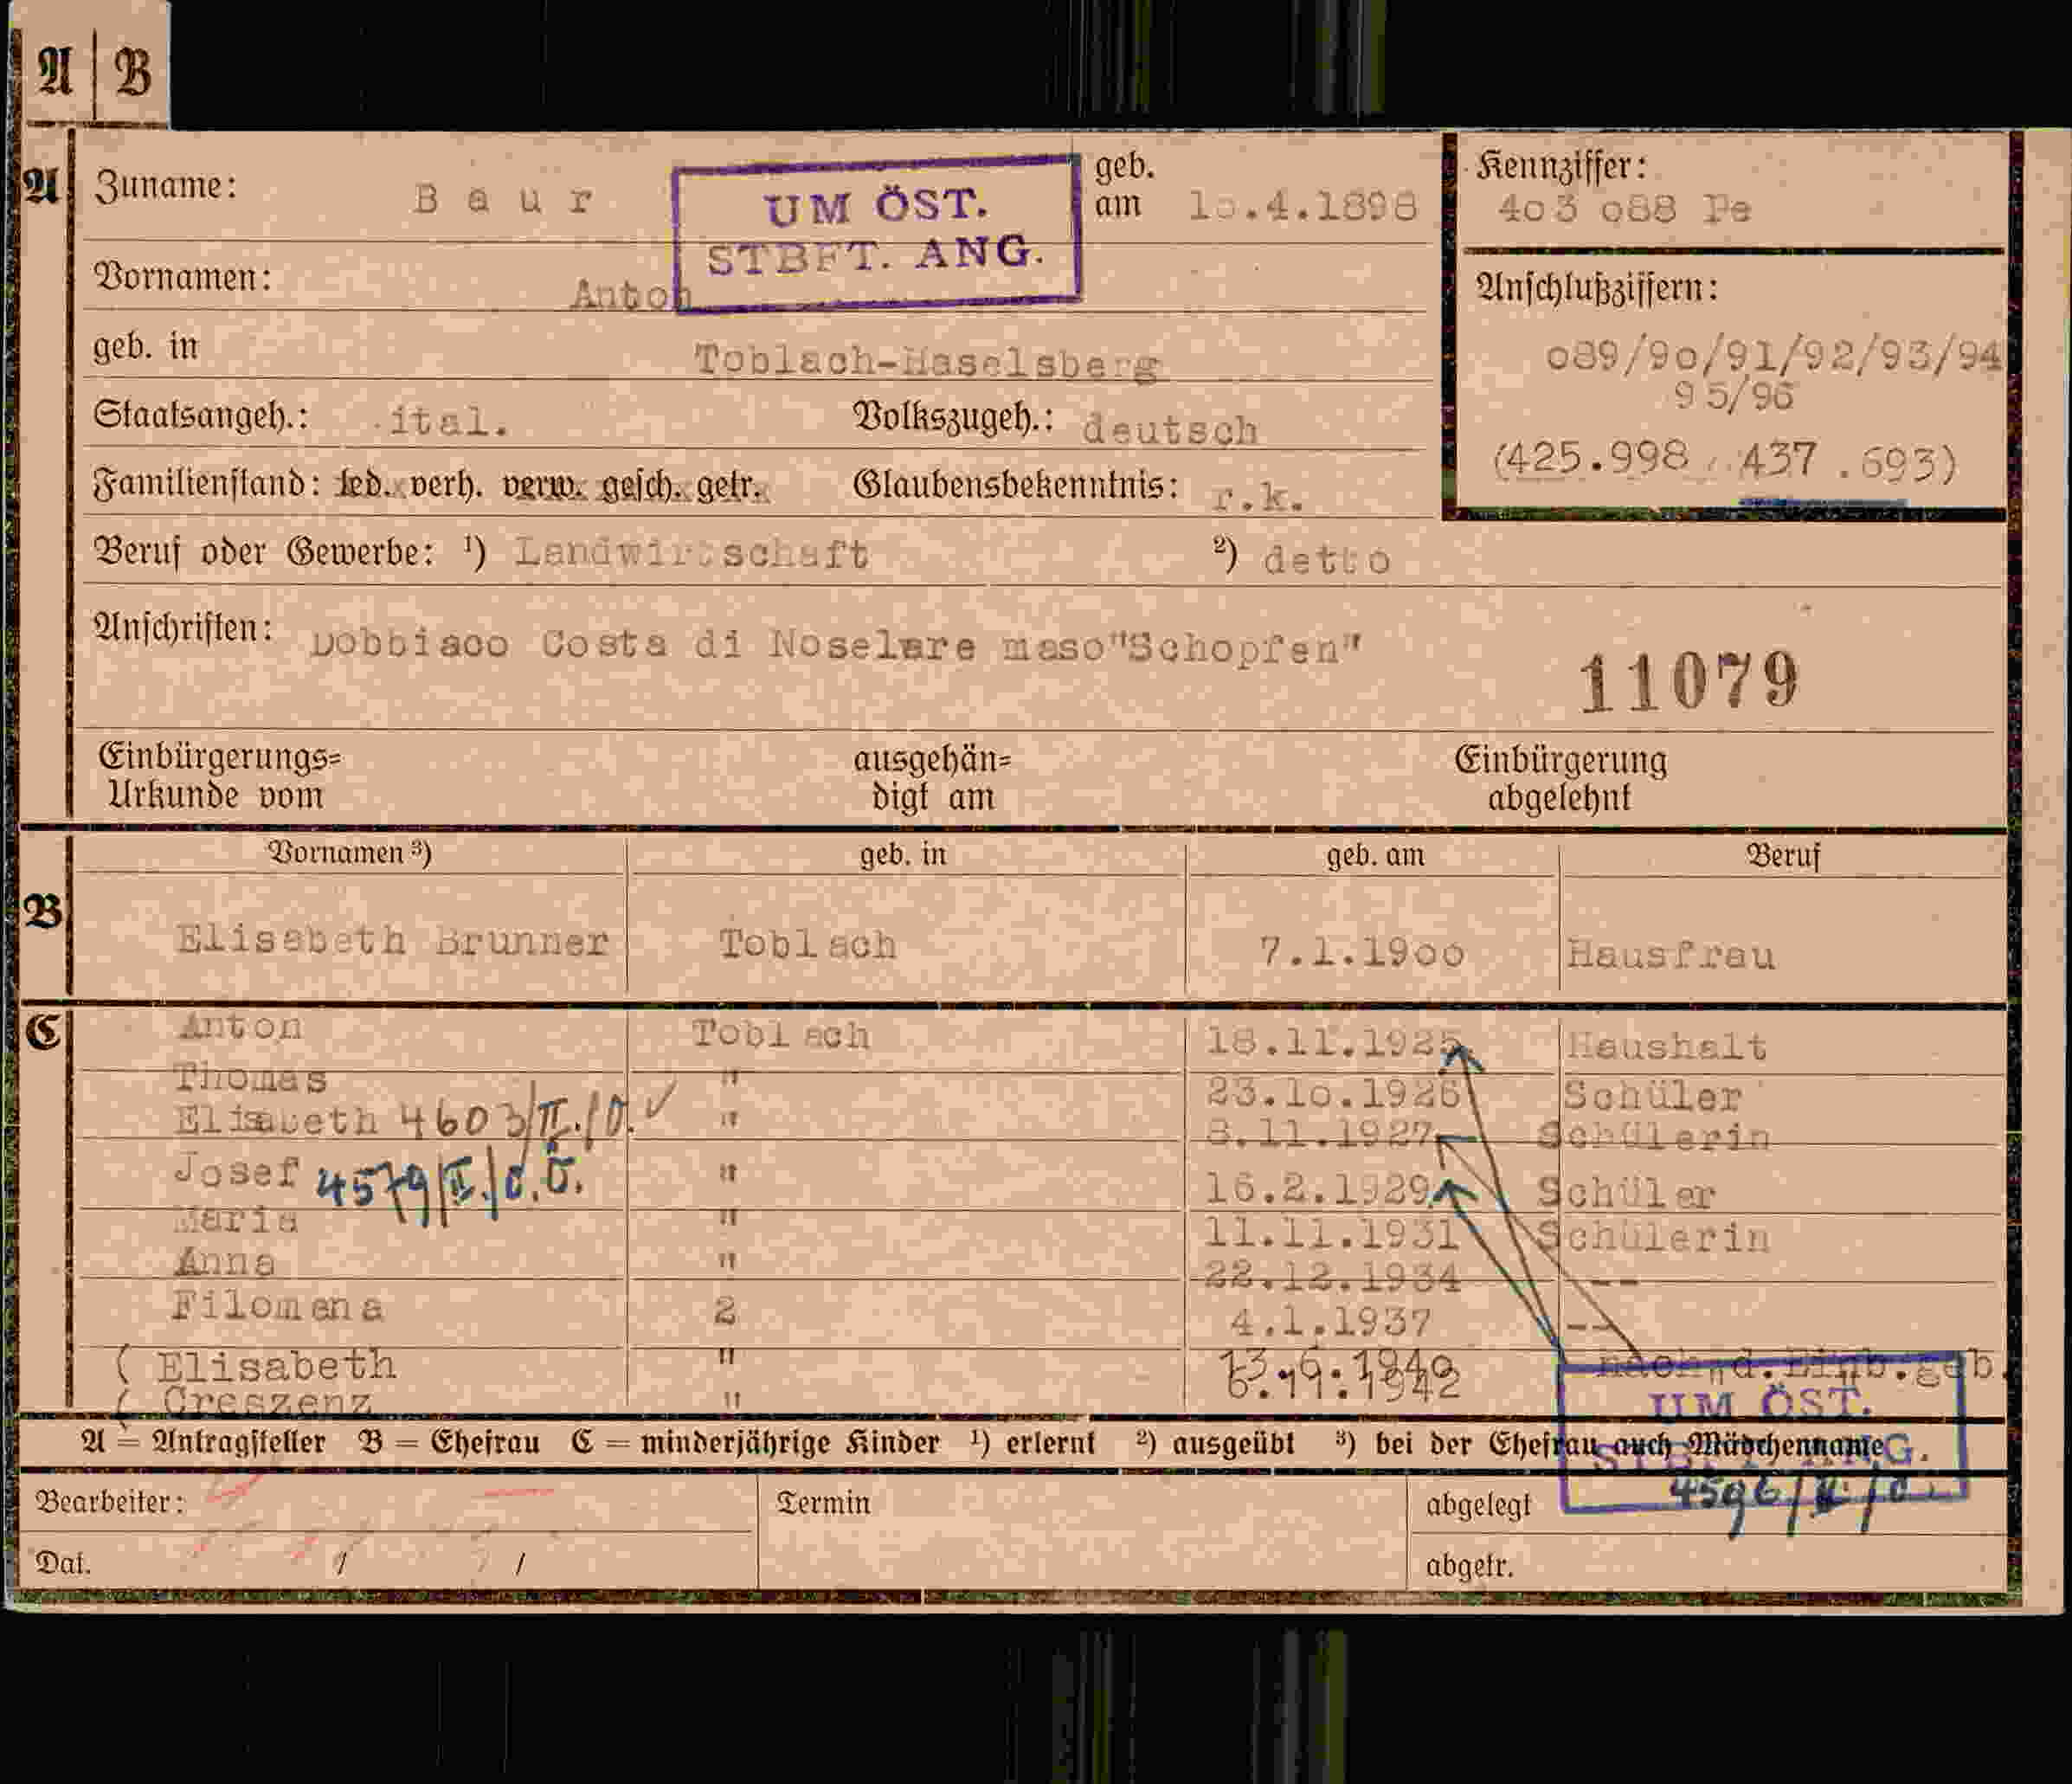 A | B
A Zuname: Baur geb. am 1 .4.1898 Kennziffer: 403 088 Pe
UM ÖST.
STBFT. ANG.
Vornamen: Anton Anschlußziffern:
089/90/91/92/93/94
95/96
geb. in Toblach-Haselsberg
Staatsangeh.: ital. Volkszugeh.: deutsch
(425.998 437.693)
Familienstand: led. verh. verw. gesch. getr. Glaubensbekenntnis: r.k.
Beruf oder Gewerbe: ¹) Landwirtschaft ²) detto
Anschriften: Dobbiaco Costa di Noselare maso"Schopfen"
11079
Einbürgerungs= Urkunde vom ausgehän= digt am Einbürgerung abgelehnt
Vornamen ³) geb. in geb. am Beruf
B Elisabeth Brunner Toblach 7.1.1900 Hausfrau
C Anton Toblach 18.11.1925 Haushalt
Thomas " 23.10.1926 Schüler
Elisabeth 4603/II./Ö. " 8.11.1927 Schülerin
Josef 4579/II./ö.Ö. " 16.2.1929 Schüler
Maria " 11.11.1931 Schülerin
Anna " 22.12.1934 --
Filomena 2 4.1.1937 --
( Elisabeth " nach d. Einb.geb.
( Creszenz "
UM ÖST.
A = Antragsteller B = Ehefrau C = minderjährige Kinder ¹) erlernt ²) ausgeübt ³) bei der Ehefrau auch Mädchenname
4596/II./Ö.
Bearbeiter: Termin abgelegt
Dat. / / abgetr.